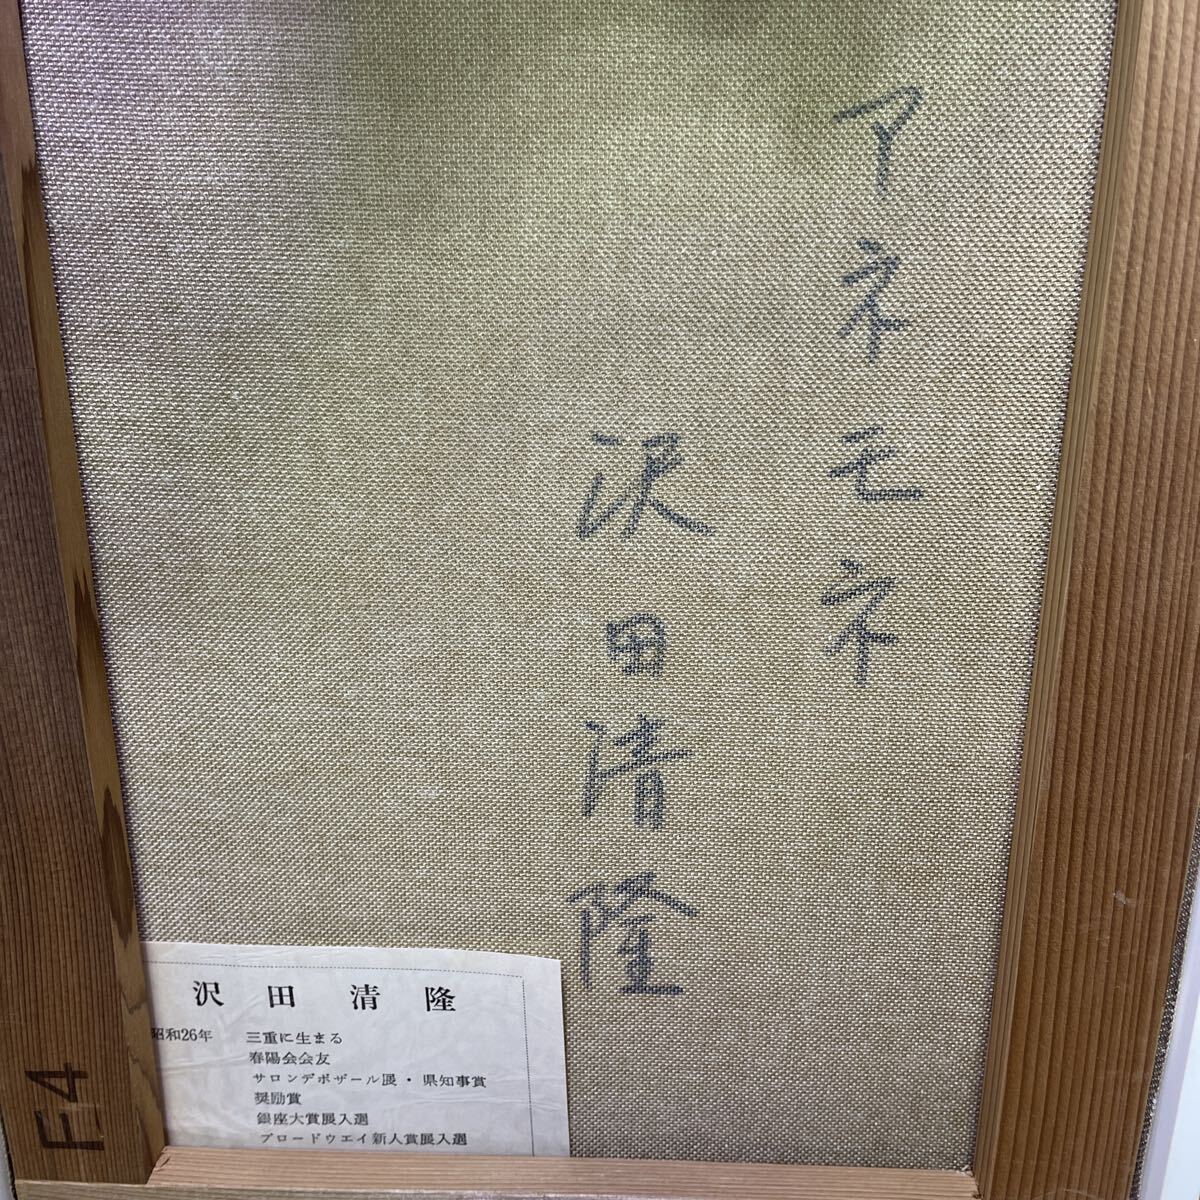 アネモネ
沢田清隆
沢田 清隆
昭和26年 三重に生まる
春陽会会友
サロンデボザール展・県知事賞
奨励賞
銀座大賞展入選
ブロードウエイ新人賞展入選
F4